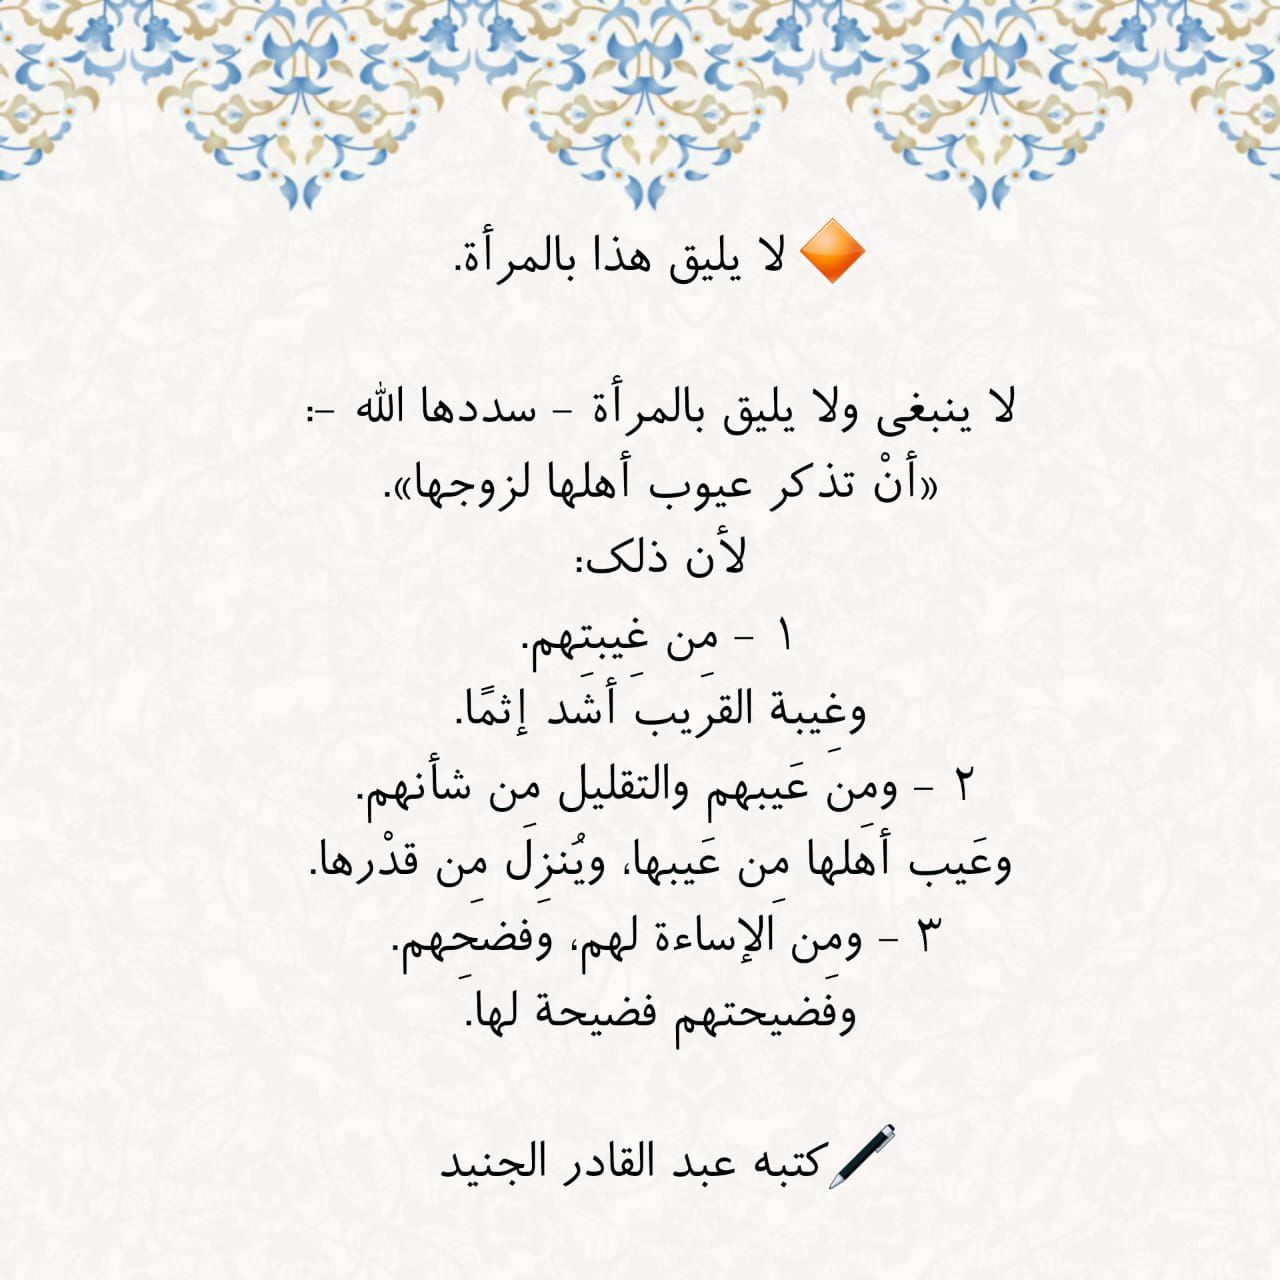 🔶 لا يليق هذا بالمرأة.
لا ينبغي ولا يليق بالمرأة – سددها الله –:
«أنْ تذكر عيوب أهلها لزوجها».
لأن ذلك:
١ – مِن غِيبتِهم.
وغِيبة القرِيب أشَد إثمًا.
٢ – ومِن عَيبهم والتقليل مِن شأنهم.
وعَيب أهلها مِن عَيبها، ويُنزِل مِن قدْرها.
٣ – ومِن الإساءة لهم، وفضحِهم.
وفَضيحتهم فضيحة لها.
🖊كتبه عبد القادر الجنيد